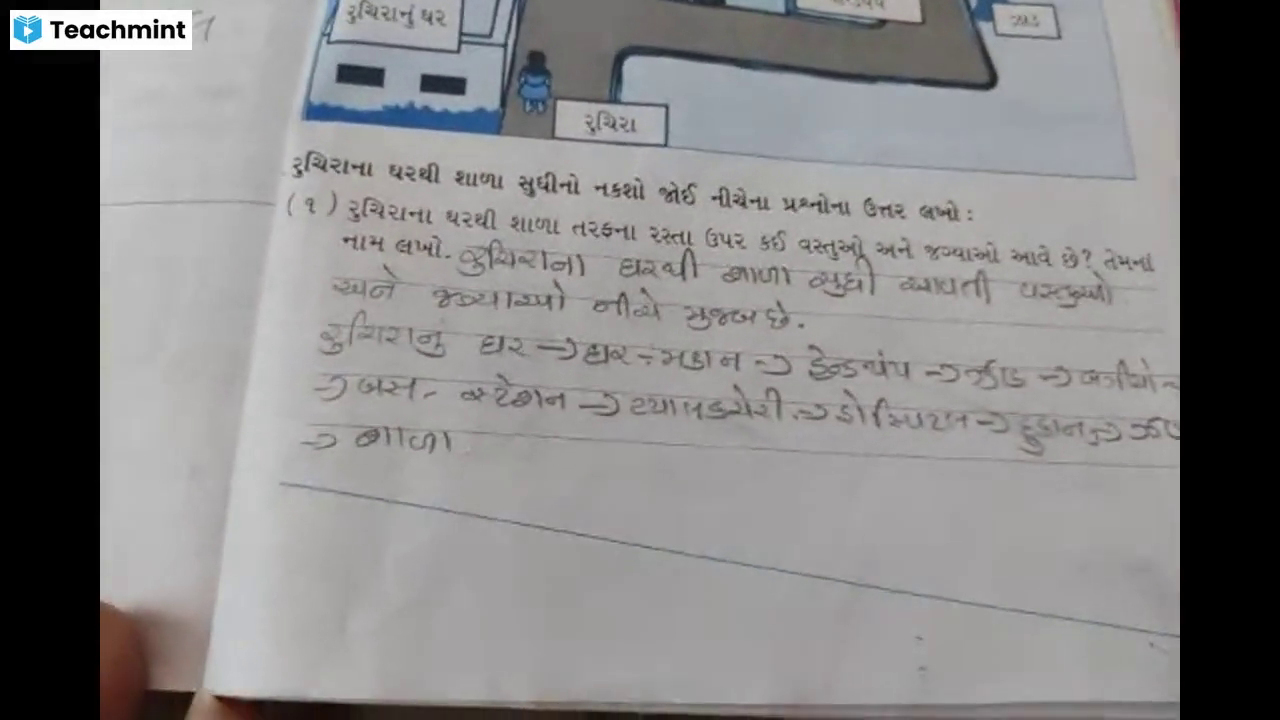 Teachmint
રુચિરાનું ઘર
ઝાડ
રુચિરા
રુચિરાના ઘરથી શાળા સુધીનો નકશો જોઈ નીચેના પ્રશ્નોના ઉત્તર લખો :
(૧) રુચિરાના ઘરથી શાળા તરફના રસ્તા ઉપર કઈ વસ્તુઓ અને જગ્યાઓ આવે છે? તેમનાં
નામ લખો. રુચિરાના ઘરથી શાળા સુધી આવતી વસ્તુઓ
અને જગ્યાઓ નીચે મુજબ છે.
રુચિરાનું ઘર → ઘર - મકાન → હેન્ડપંપ → ઝાડ → બગીચો →
→ બસ - સ્ટેશન → → હોસ્પિટલ → દુકાન →
→ શાળા